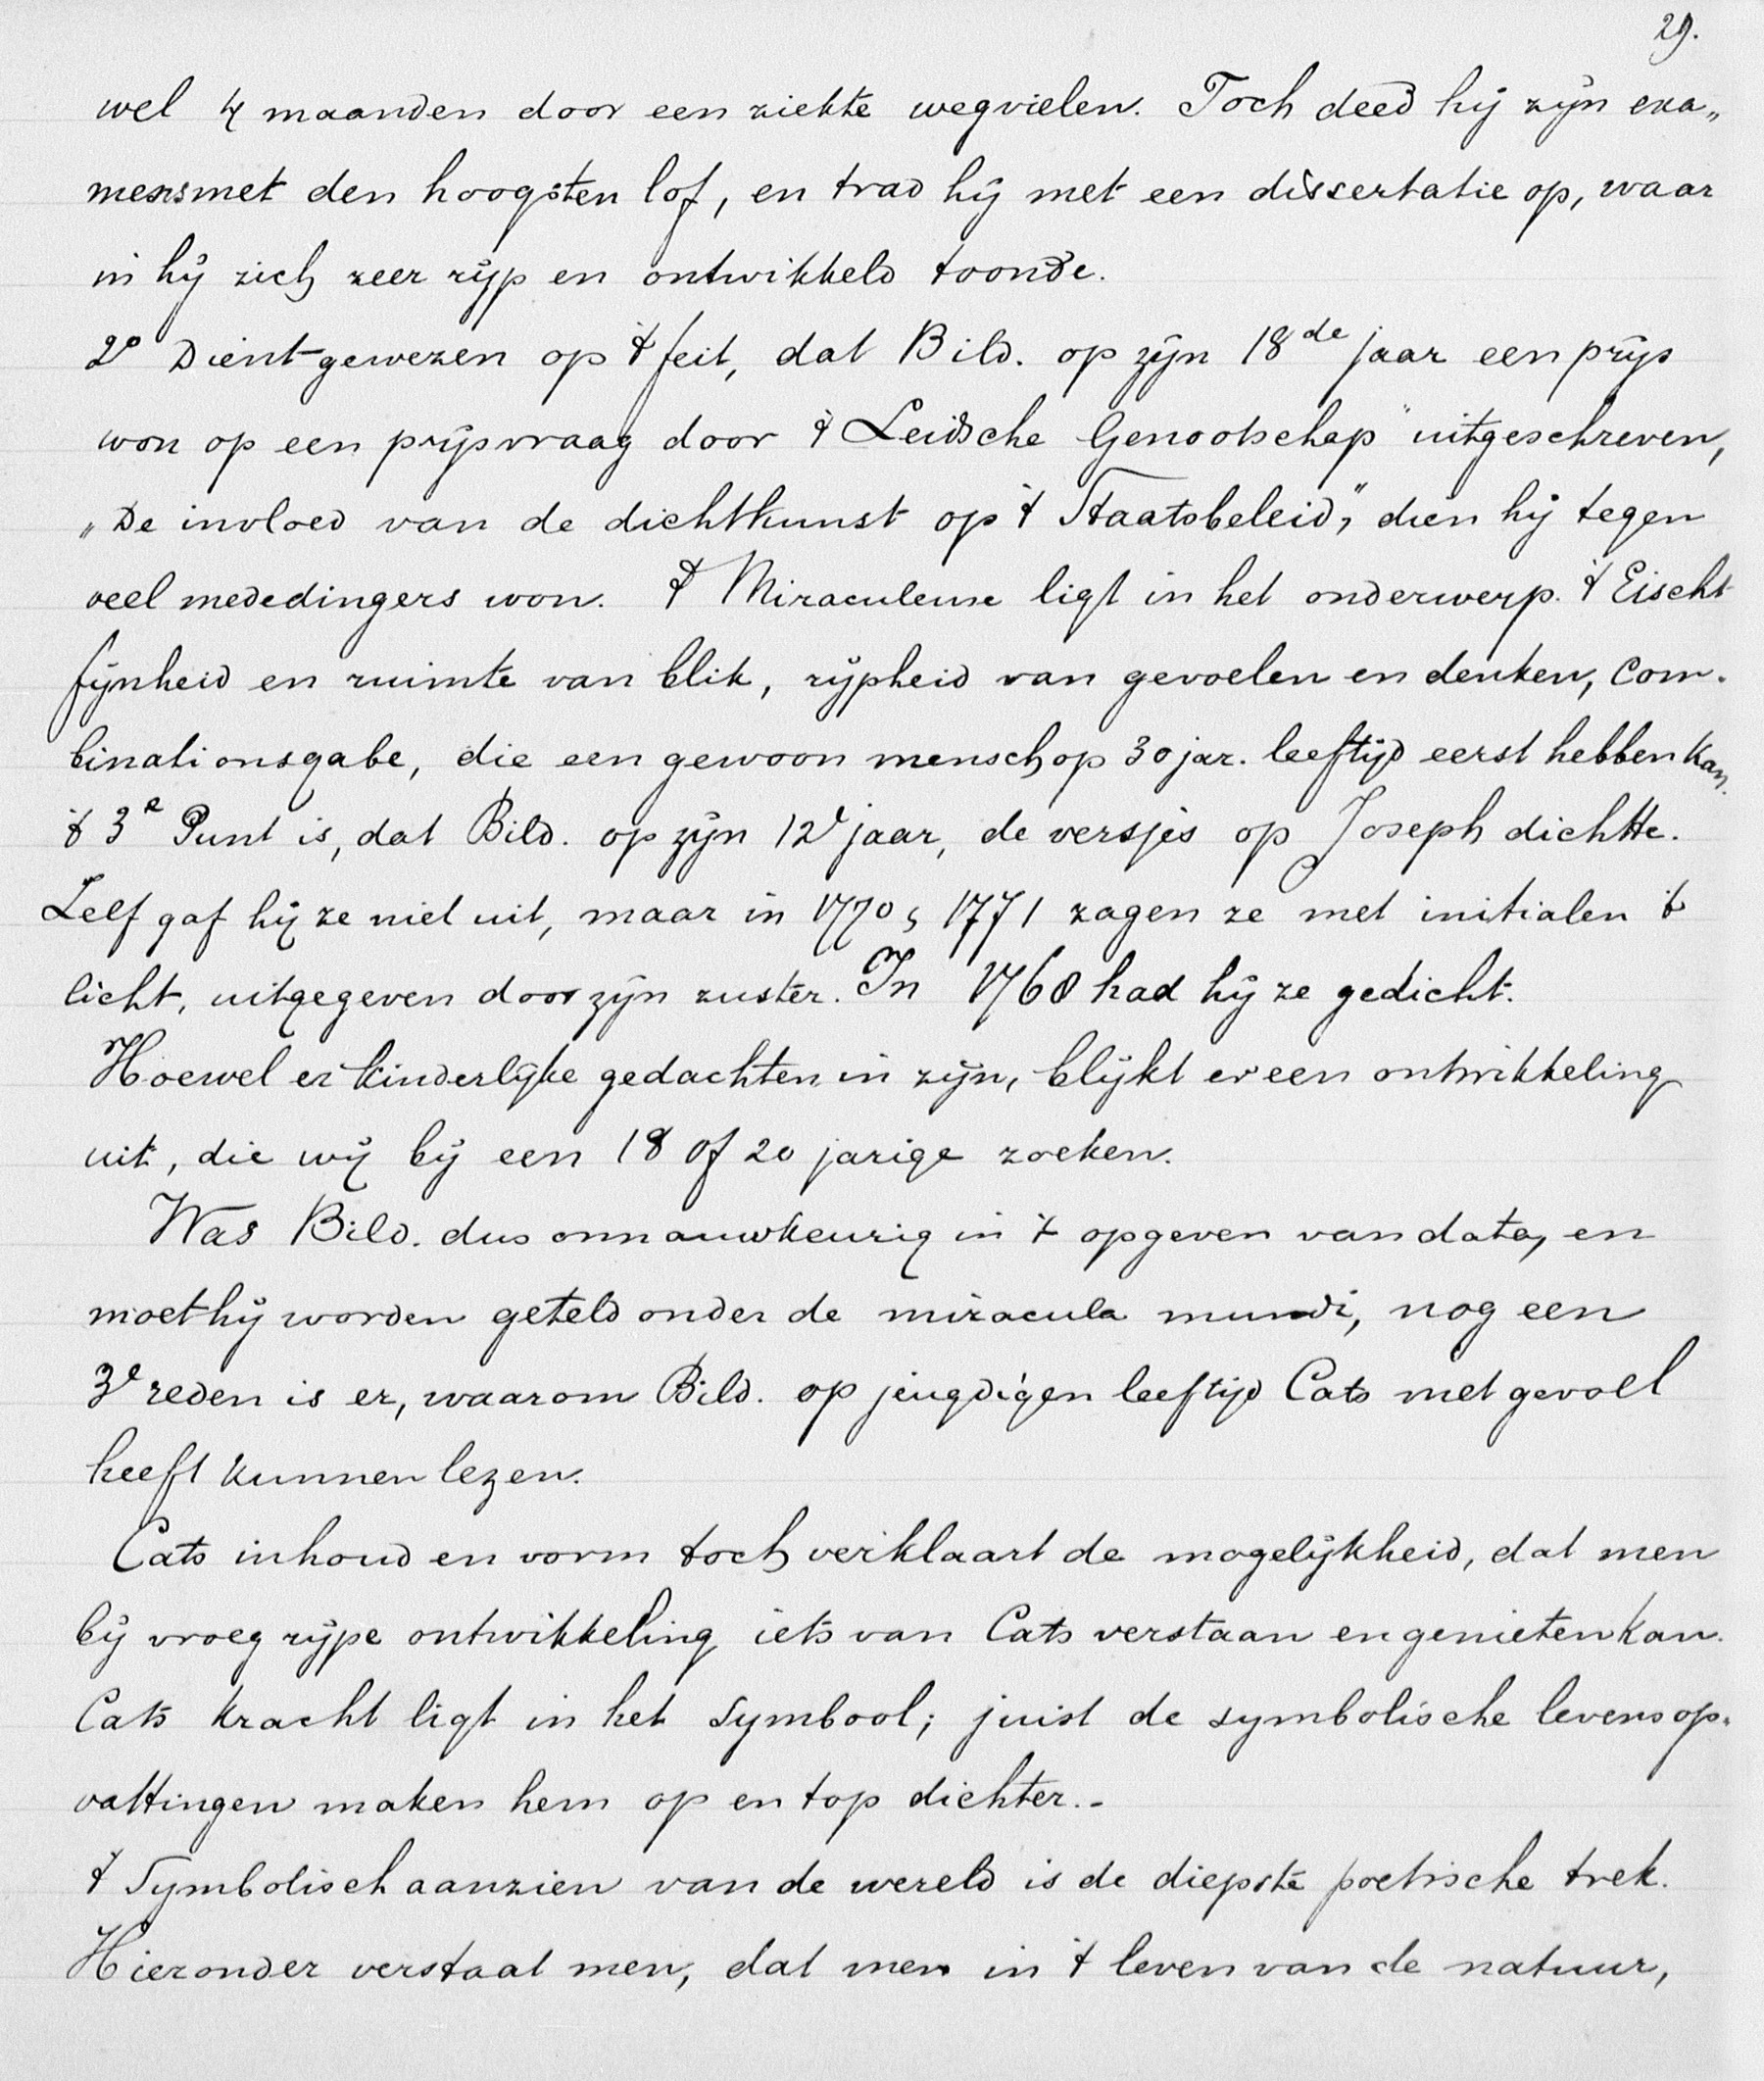 29.
wel 4 maanden door een ziekte wegvielen. Toch deed hij zijn exa„
mensmet den hoogsten lof, en trad hij met een dissertatie op, waar
in hij zich zeer rijp en ontwikkeld toonde.
2° Dient gewezen op 't feit, dat Bild. op zijn 18de jaar een prijs
won op een prijsvraag door 't Leidsche Genootschap" uitgeschreven,
„De invloed van de dichtkunst op 't Staatsbeleid," dien hij tegen
veel mededingers won. 't Miraculeuse ligt in het onderwerp. 't Eischt
fijnheid en ruimte van blik, rijpheid van gevoelen en denken, com-
binationsgabe, die een gewoon mensch op 30 jar. leeftijd eerst hebben kan.
't 3e Punt is, dat Bild. op zijn 12e jaar, de versjes op Joseph dichtte.
Zelf gaf hij ze niet uit, maar in 1770 & 1771 zagen ze met initialen 't
licht, uitgegeven door zijn zuster. In 1768 had hij ze gedicht.
Hoewel er kinderlijke gedachten in zijn, blijkt er een ontwikkeling
uit, die wij bij een 18 of 20 jarige zoeken.
Was Bild. dus onnauwkeurig in 't opgeven van data, en
moet hij worden geteld onder de miracula mundi, nog een
3e reden is er, waarom Bild. op jeugdigen leeftijd Cats met gevoel
heeft kunnen lezen.
Cats inhoud en vorm toch verklaart de mogelijkheid, dat men
bij vroeg rijpe ontwikkeling iets van Cats verstaan en genieten kan.
Cats kracht ligt in het symbool; juist de symbolische levensop-
vattingen maken hem op en top dichter.-
't Symbolisch aanzien van de wereld is de diepste poetische trek.
Hieronder verstaat men, dat men in 't leven van de natuur,